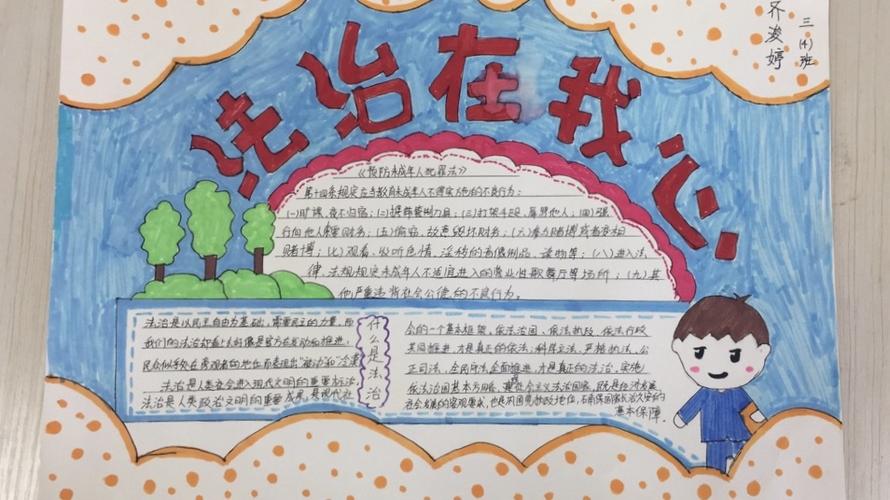 三(4)班
齐浚婷
法治在我心
《预防未成年人犯罪法》
第十四条规定应当教育未成年人不得实施的不良行为：
(一)旷课、夜不归宿；(二)携带管制刀具；(三)打架斗殴、辱骂他人；(四)强
行向他人索要财务；(五)偷窃、故意毁坏财务；(六)参与赌博或者变相
赌博；(七)观看、收听色情、淫秽的音像制品、读物等；(八)进入法
律、法规规定未成年人不适宜进入的营业性歌舞厅等场所；(九)其
他严重违背社会公德的不良行为。
什么是法治
法治是以民主自由为基础，需要民主的力量，而
我们的法治却看上去好像是官方在发动和推进，
民众似乎处在旁观者的地位而表现出"被动"和"冷漠
法治是人类社会进入现代文明的重要标志，
法治是人类政治文明的重要成果，是现代社
会的一个基本框架。依法治国、依法执政、依法行政
共同推进，才是真正的依法；科学立法、严格执法、公
正司法、全民守法全面推进，才是真正的法治，实施
依法治国基本方略、建设社会主义法治国家，既是经济发展、
社会发展的客观要求，也是巩固党的执政地位、国家长治久安的
基本保障。